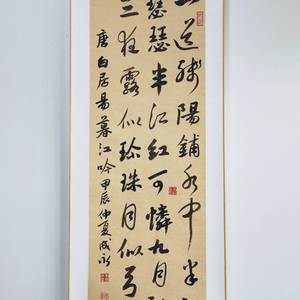 一道残陽鋪水中半江
瑟瑟半江红可憐九月初
三夜露似珍珠月似弓
唐白居易暮江吟甲辰仲夏成永